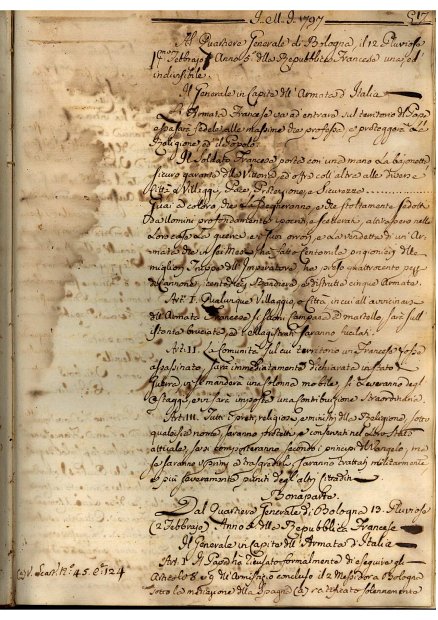 J. M. J. 1797
517
Al Quartiere Generale di Bologna, il 12 Pluvioso
1mo Febbrajo Anno 5 della Repubblica Francese una, ed
indivisibile.
Il Generale in Capite dell'Armata d'Italia
L'Armata Francese va ad entrare sul territorio del Papa
sarà fedele alle massime che professa e proteggerà la
Religione ed il Popolo.
Il Soldato Francese porta con una mano la bajonetta
sicuro garante della Vittoria ed offre coll'altra alle diverse
Città, e Villaggi, Pace, Protezione, e Sicurezza
Guai a coloro che la sdegneranno, e che stoltamente sedotti
da Uomini profondamente ipocriti, e scellerati, attireranno nelle
loro case la guerra, ed i suoi orrori, e la vendetta di un'Ar-
mata che in sei Mesi ha fatto Centomila prigionieri delle
migliori Truppe dell'Imperatore, ha preso quattrocento pezzi
di Cannone, cento dieci Bandiere, e distrutte cinque Armate.
Art. I. Qualunque Villaggio, o Città, in cui all'avvicinarsi
dell'Armata Francese si suoni Campana a martello, sarà sull'
istante bruciata, ed i Magistrati saranno fucilati.
Art. II. La Comunità sul cui territorio un Francese fosse
assassinato, sarà immediatamente dichiarata in istato di
guerra, vi si manderà una Colonna mobile, si leveranno degli
Ostaggi, e vi sarà imposta una contribuzione straordinaria.
Art. III. Tutti i preti, religiosi, e ministri della Religione, sotto
qualsisia nome, saranno protetti, e conservati nel loro stato
attuale, se si comporteranno secondo i principj del Vangelo, ma
se saranno i primi a trasgredirli, saranno trattati militarmente
e più severamente puniti degli altri Cittadini.
Bonaparte.
Dal Quartiere Generale di Bologna 13. Pluvioso
(2 Febbrajo) Anno 5 della Repubblica Francese
Il Generale in Capite dell'Armata d'Italia
Art. I. Il Papa ha ricusato formalmente di eseguire gli
Articoli 8, e 9 dell'Armistizio concluso il 2 Messidoro a Bologna
sotto la mediazione della Spagna (a) ratificato solennemente
(a) V. Scart. N.° 45. C.e 124